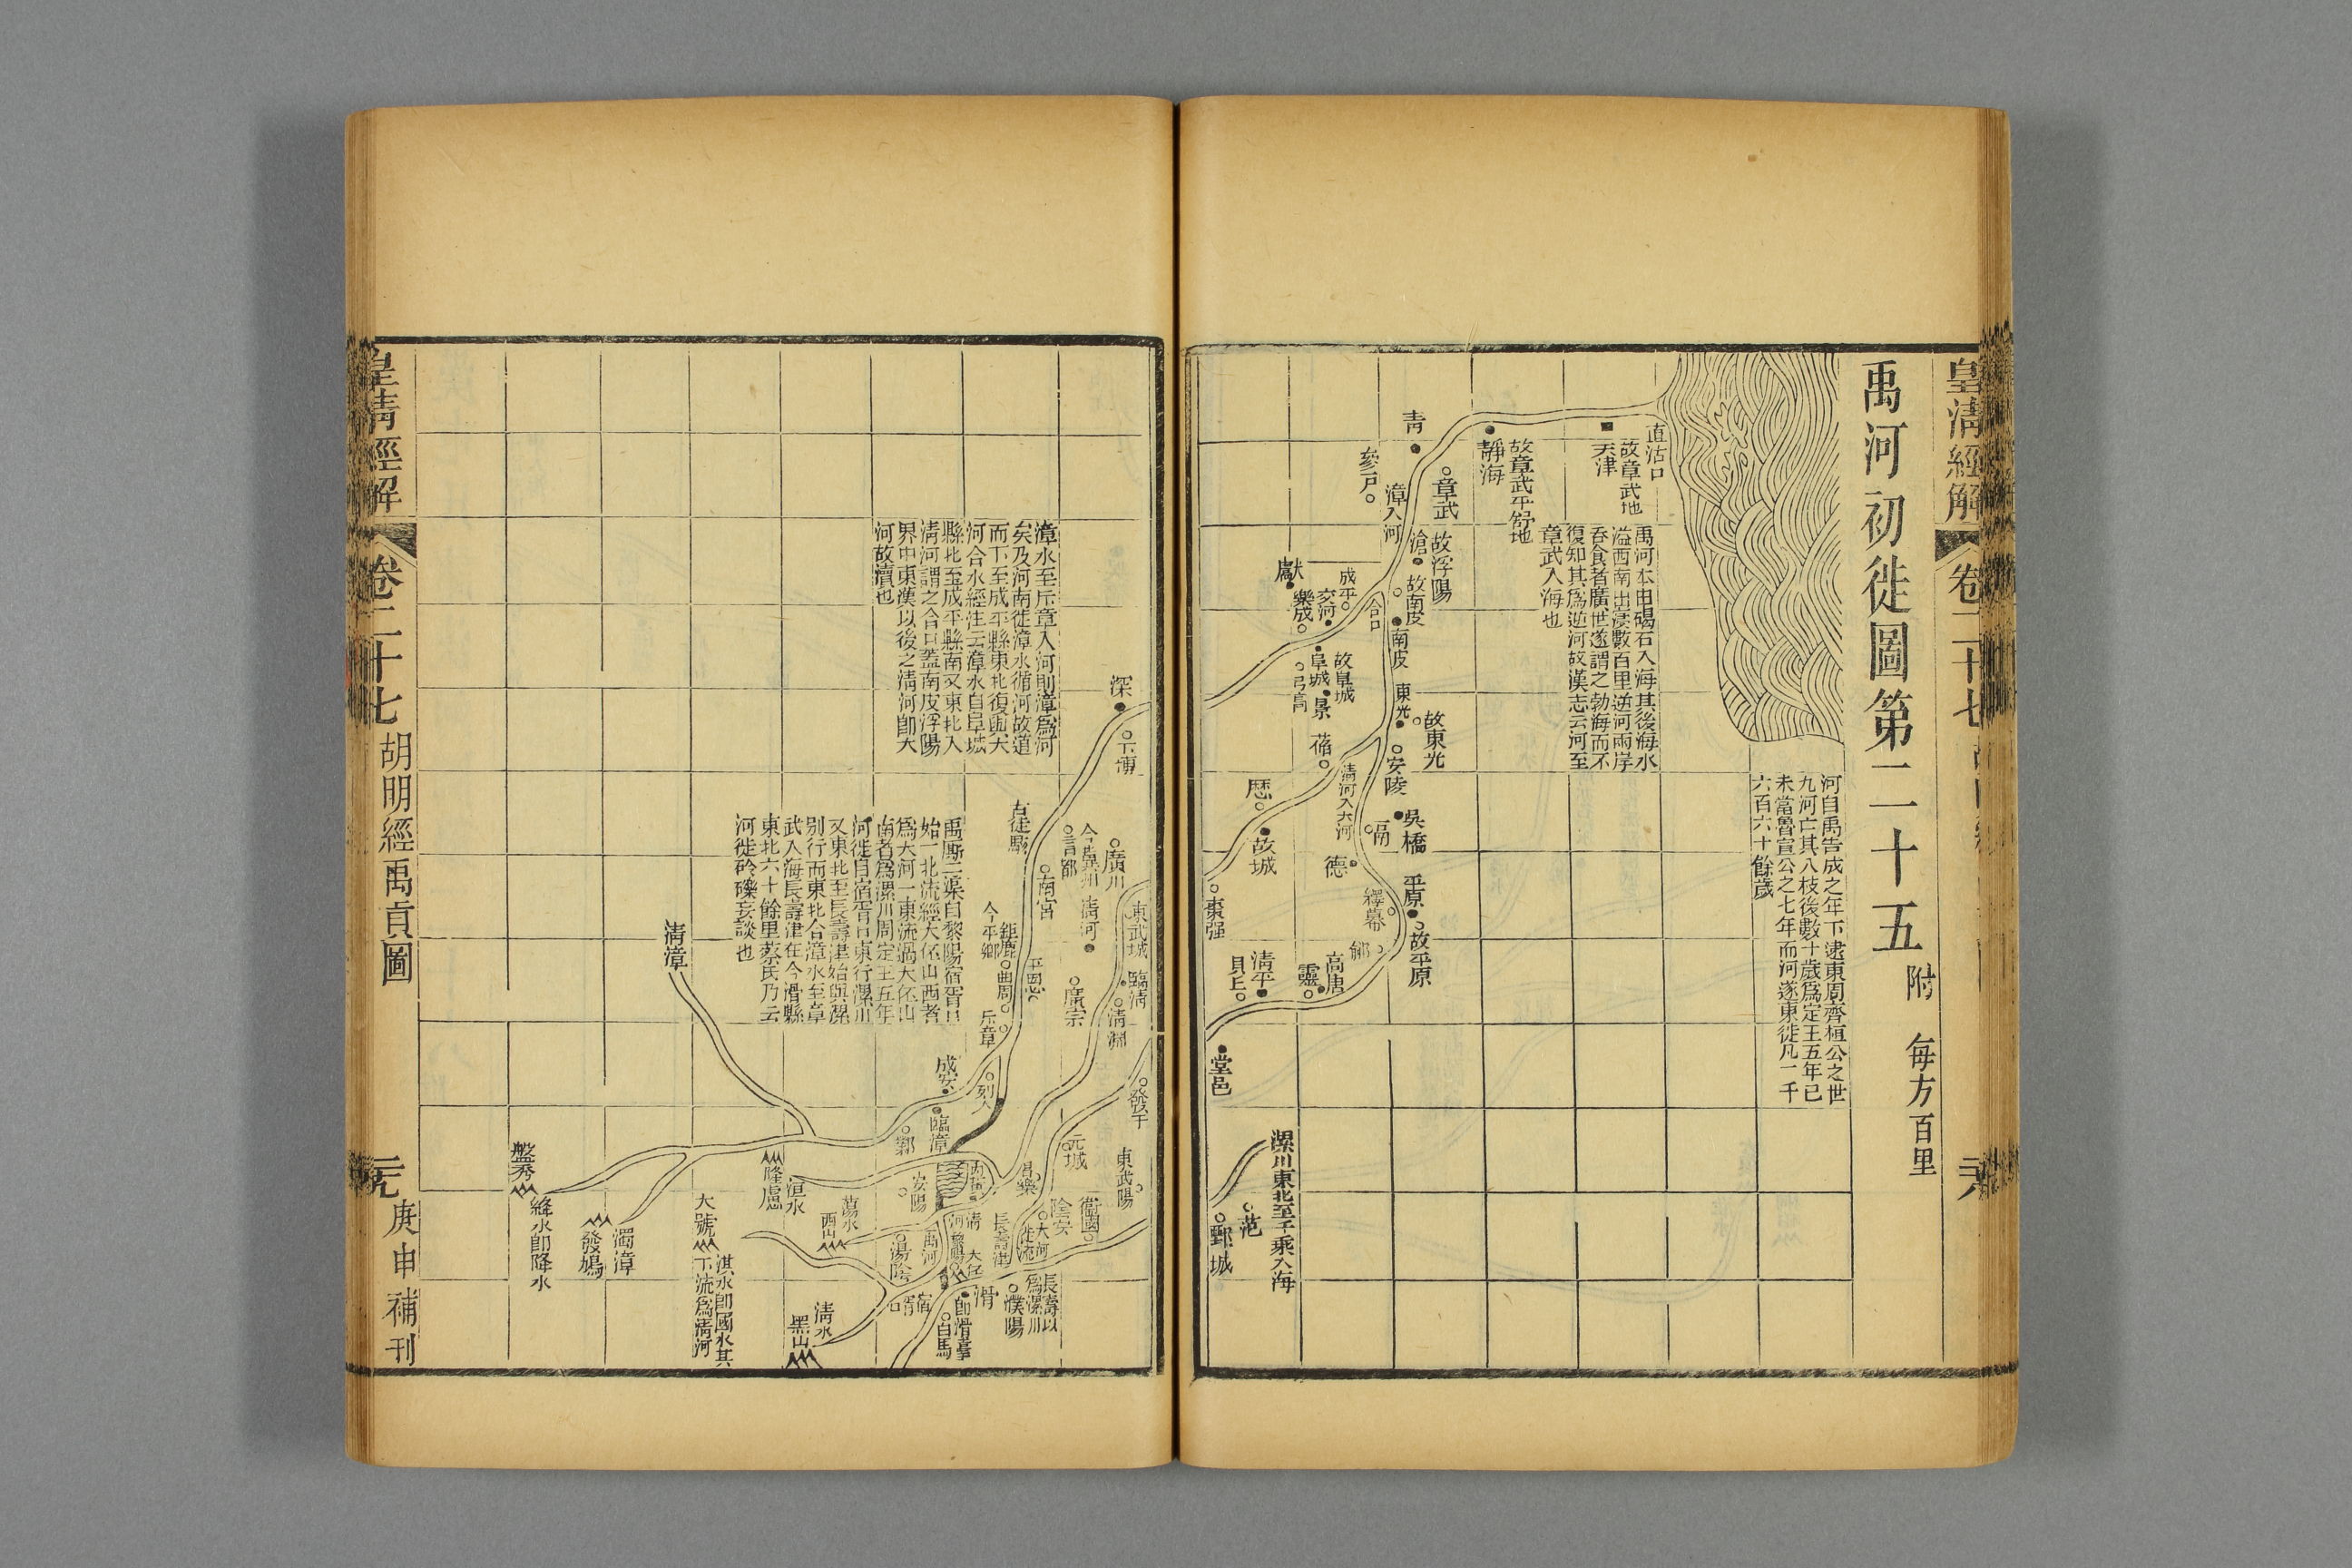 皇清經解
卷二十七
禹河初徙圖第二十五
附
每方百里
河自禹告成之年下逮東周齊桓公之世
九河亡其八枝後數十歲爲定王五年已
未當魯宣公之七年而河遂東徙凡一千
六百六十餘歲
直沽口
故章武地
天津
禹河本由碣石入海其後海水
溢西南出浸數百里逆河兩岸
吞食者廣世遂謂之勃海而不
復知其爲逆河故漢志云河至
章武入海也
故章武平舒地
靜海
青
章武
參戸
漳入河
故浮陽
滄
故南皮
南皮
合口
成平
交河
獻
樂成
故阜城
阜城
弓高
景
東光
故東光
蓨
安陵
清河入大河
吳橋
鬲
德
歷
故城
棗强
平原
故平原
繹幕
鄃
高唐
靈
清平
貝丘
堂邑
漯川東北至千乘入海
范
鄄城
漳水至斥章入河則漳爲河
矣及河南徙漳水循河故道
而下至成平縣東北復與大
河合水經注云漳水自阜城
縣北至成平縣南又東北入
清河謂之合口蓋南皮浮陽
界中東漢以後之清河卽大
河故瀆也
深
下博
禹厮二渠自黎陽宿胥口
始一北流經大伾山西者
爲大河一東流過大伾山
南者爲漯川周定王五年
河徙自宿胥口東行漯川
又東北至長壽津始與漯
别行而東北合漳水至章
武入海長壽津在今滑縣
東北六十餘里蔡氏乃云
河徙砱礫妄談也
廣川
今冀州
信都
南宮
清河
東武城
臨清
清淵
廣宗
今平鄉
鉅鹿
曲周
平恩
斥章
列人
成安
臨漳
鄴
清漳
發干
元城
東武陽
昌樂
衞國
陰安
大河
徙流
長壽津
安陽
洹水
隆慮
蕩水
西山
湯陰
禹河
大伾
宿
胥
口
滑
卽滑臺
白馬
濮陽
長壽以
爲漯川
盤秀
絳水卽降水
發鳩
濁漳
大號
淇水卽國水其
下流爲清河
清水
黑山
皇清經解
卷二十七
胡明經禹貢圖
庚申補刊